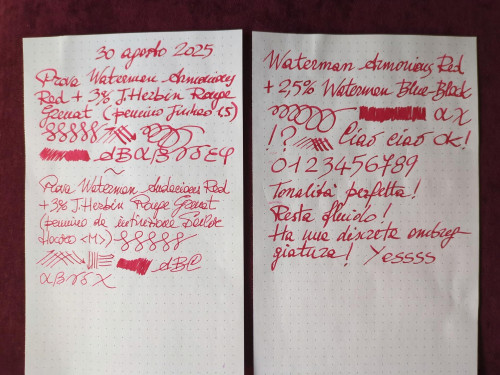 30 agosto 2025
Prova Waterman Armonious
Red + 3% J. Herbin Rouge
Grenat (pennino Jinhao <S)
αBαβγδεφ
~
Prova Waterman Audacious Red
+ 3% J. Herbin Rouge Grenat
(pennino da
<M>)
αBC
αβγδχ
Waterman Armonious Red
+ 2,5% Waterman Blue-Black
αχ
!? Ciao ciao OK!
0123456789
Tonalità perfetta!
Resta fluido!
Ha una discreta ombreg
giatura! Yessss